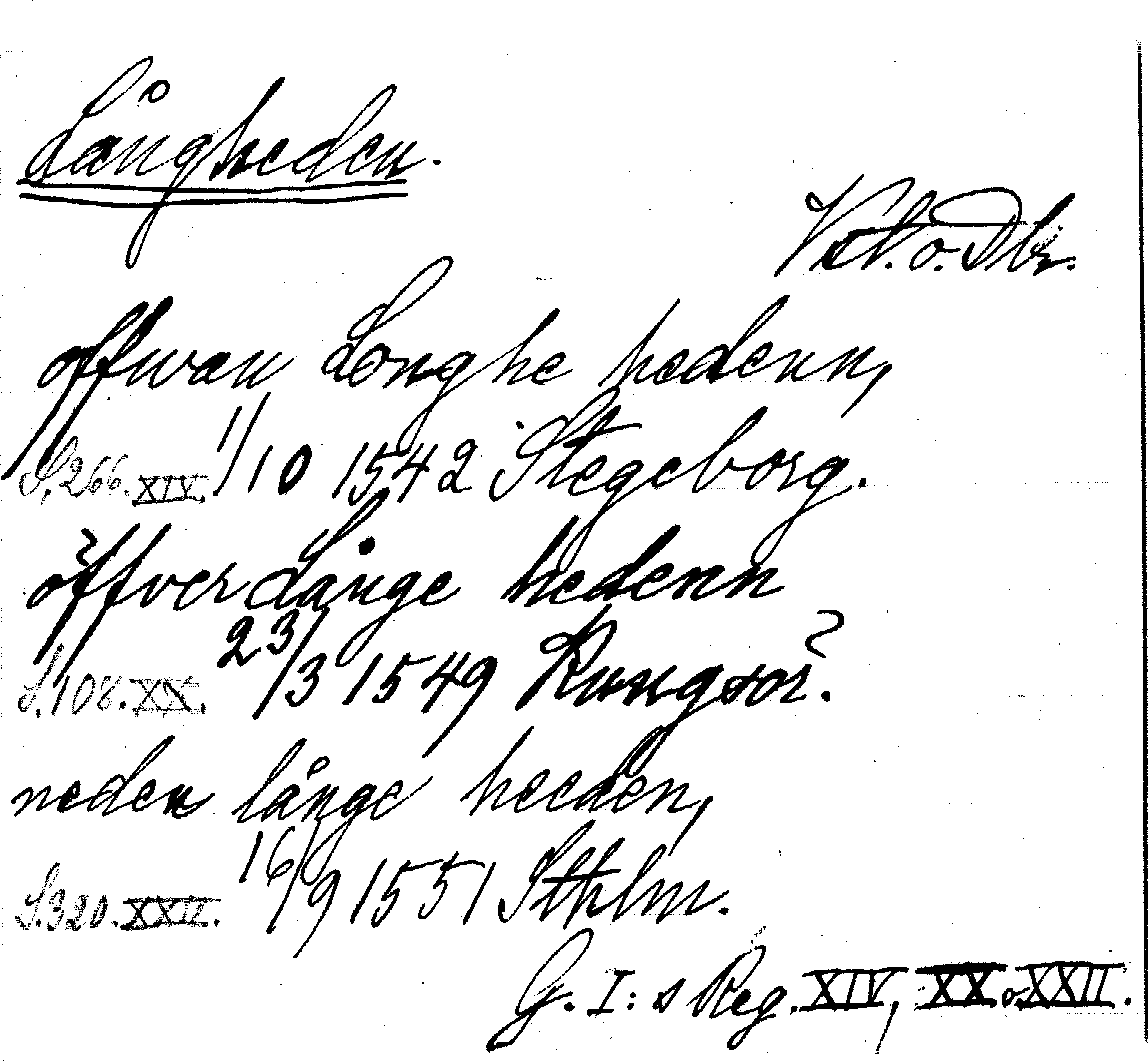 Långheden.
Vstl. o. Dlr.
offwan Longhe hedenn,
S. 266. XIV. 1/10 1542 Stegeborg.
öffver Långe hedenn
S. 108. XX. 23/3 1549 Kungsör.
neden långe heeden,
S. 320. XXII. 16/9 1551 Sthlm.
G. I:s Reg. XIV, XX o. XXII.